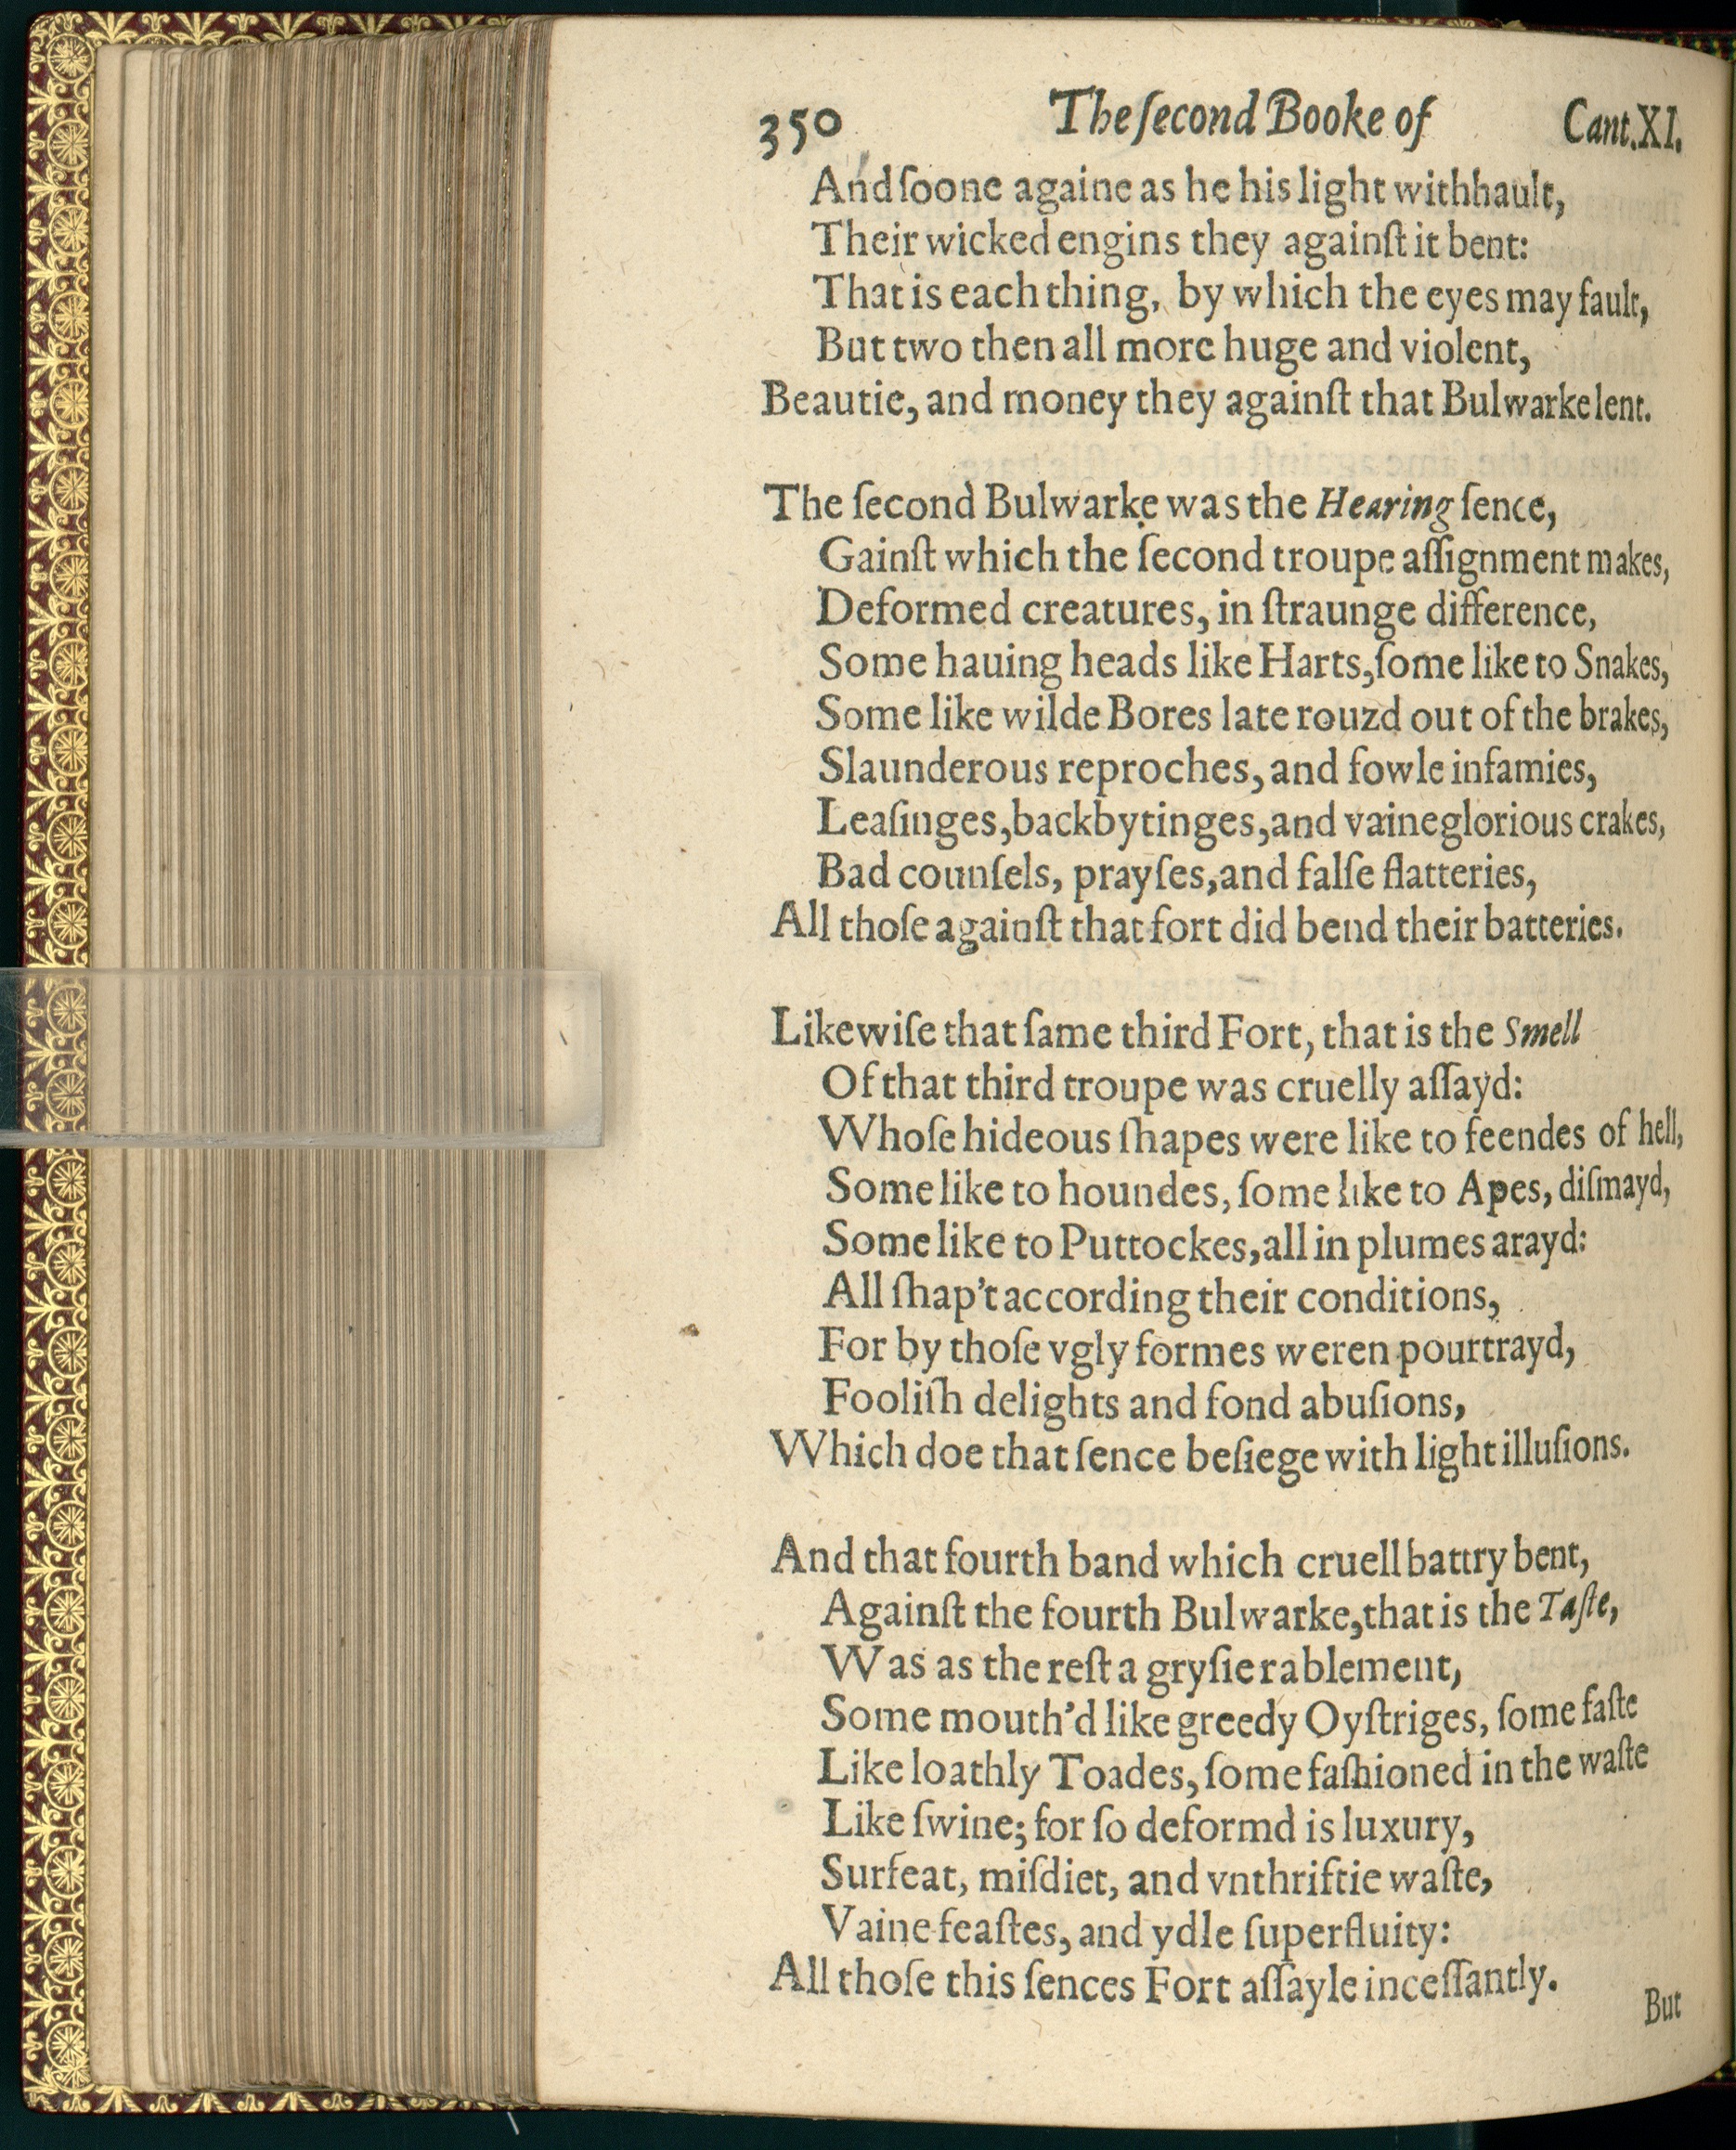 350 The ſecond Booke of Cant.XI.
And ſoone againe as he his light withhault,
Their wicked engins they againſt it bent:
That is each thing, by which the eyes may fault,
But two then all more huge and violent,
Beautie, and money they againſt that Bulwarke lent.
The ſecond Bulwarke was the Hearing ſence,
Gainſt which the ſecond troupe aſſignment makes,
Deformed creatures, in ſtraunge difference,
Some hauing heads like Harts, ſome like to Snakes,
Some like wilde Bores late rouzd out of the brakes,
Slaunderous reproches, and fowle infamies,
Leaſinges, backbytinges, and vaineglorious crakes,
Bad counſels, prayſes, and falſe flatteries,
All thoſe againſt that fort did bend their batteries.
Likewiſe that ſame third Fort, that is the Smell
Of that third troupe was cruelly aſſayd:
Whoſe hideous ſhapes were like to feendes of hell,
Some like to houndes, ſome like to Apes, diſmayd,
Some like to Puttockes, all in plumes arayd:
All ſhap't according their conditions,
For by thoſe vgly formes weren pourtrayd,
Fooliſh delights and fond abuſions,
Which doe that ſence beſiege with light illuſions.
And that fourth band which cruell battry bent,
Againſt the fourth Bulwarke, that is the Taſte,
Was as the reſt a gryſie rablement,
Some mouth'd like greedy Oyſtriges, ſome faſte
Like loathly Toades, ſome faſhioned in the waſte
Like ſwine; for ſo deformd is luxury,
Surfeat, miſdiet, and vnthriftie waſte,
Vaine feaſtes, and ydle ſuperfluity:
All thoſe this ſences Fort aſſayle inceſſantly.
But